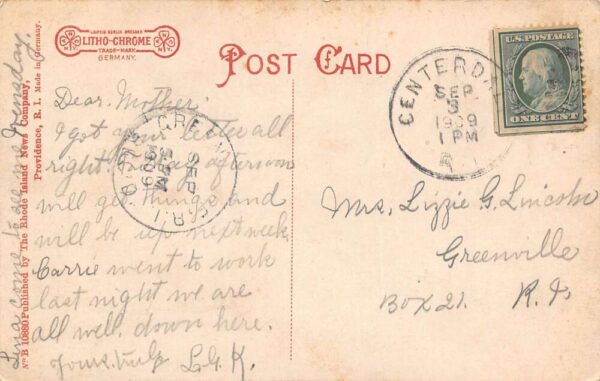 LEIPZIG-BERLIN-DRESDEN
LITHO-CHROME
TRADE-MARK
GERMANY.
POST CARD
U.S. POSTAGE
ONE CENT
CENTERDA
SEP
3
1909
1 PM
R.I.
Dear Mother
I got your letter all
right. afternoon
will get things and
will be up next week
Carrie went to work
last night we are
all well. down here.
Yours truly L.G.K.
GREE
SEP
3
PM
1909
R.I.
Mrs. Lizzie G. Lincoln
Greenville
Box 21. R.I.
Lena come to all me
No B 10880 Published by The Rhode Island News Company,
Providence, R. I. Made in Germany.